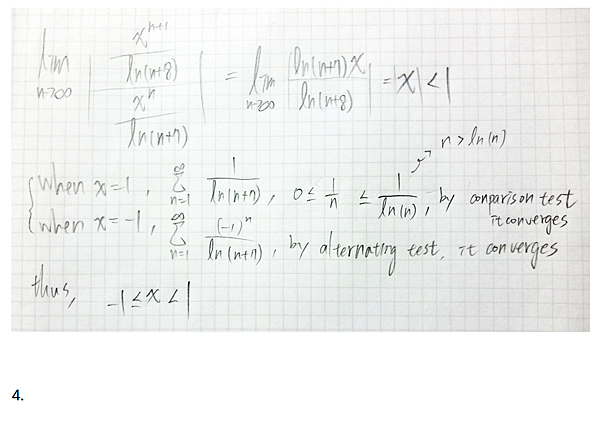 lim n→∞ | (x^(n+1) / ln(n+8)) / (x^n / ln(n+7)) | = lim n→∞ | ln(n+7)x / ln(n+8) | = |x| < 1
n > ln(n)
{ when x=1, ∑ n=1 ∞ 1/ln(n+7), 0 ≤ 1/n ≤ 1/ln(n), by comparison test
it converges
{ when x=-1, ∑ n=1 ∞ (-1)^n/ln(n+7), by alternating test, it converges
thus, -1 ≤ x < 1
4.